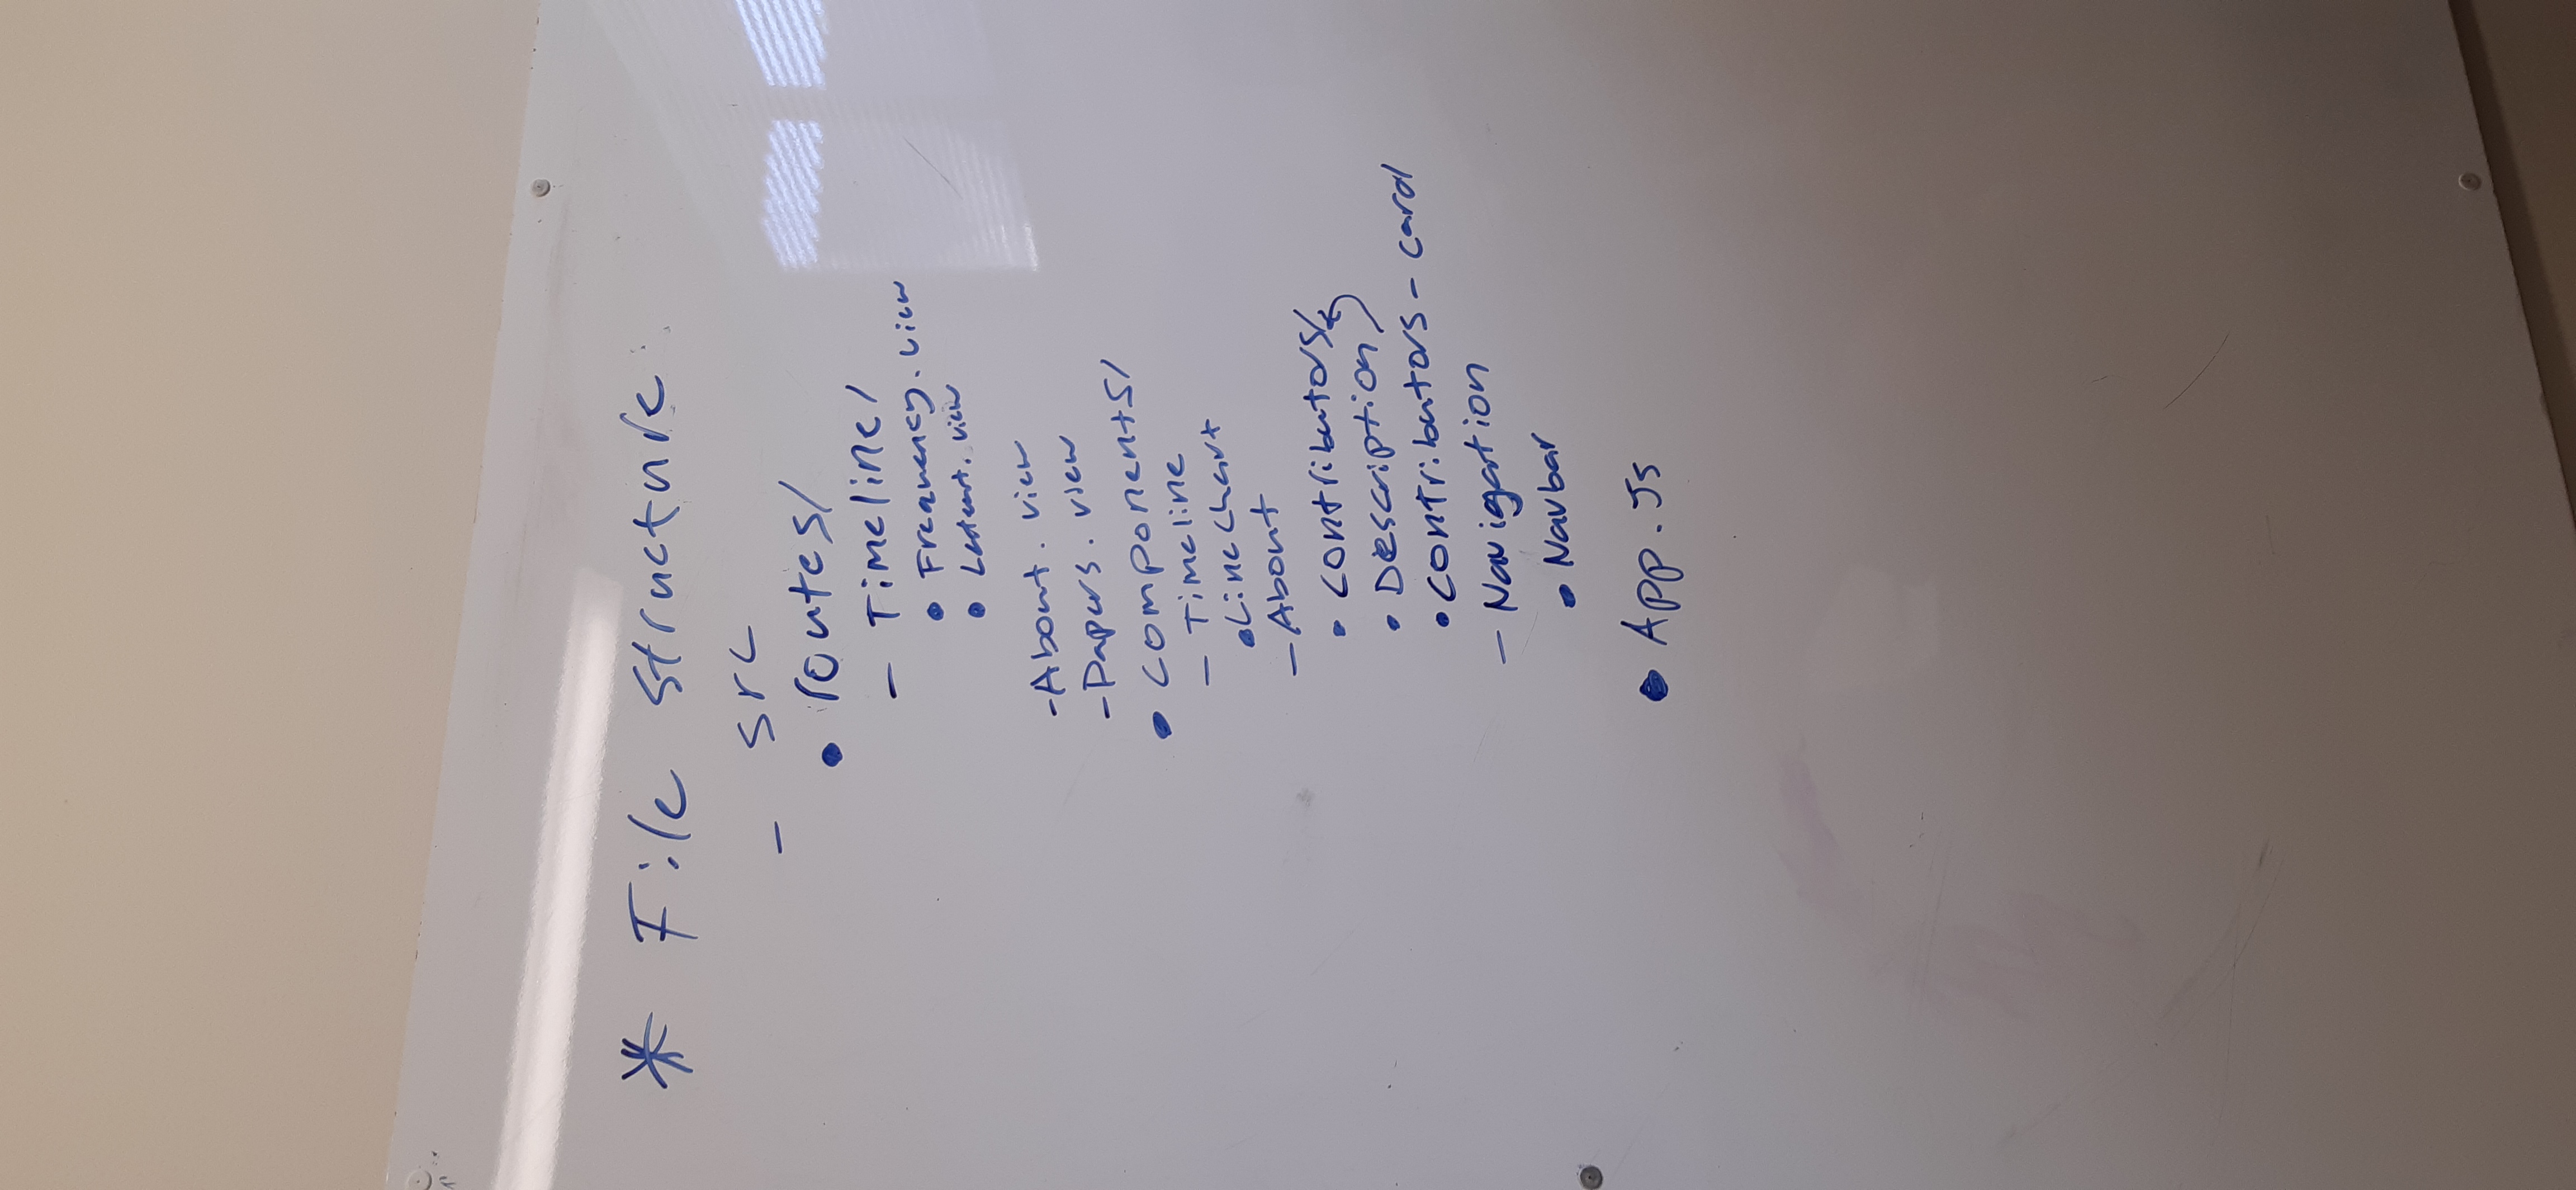 * File structure
- src
• routes/
- Timeline/
• Frequency.view
• .view
- About.view
- Papers.view
• components/
- Timeline
• LineChart
- About
• contributors/
• Description
• contributors-card
- Navigation
• Navbar
• App.Js